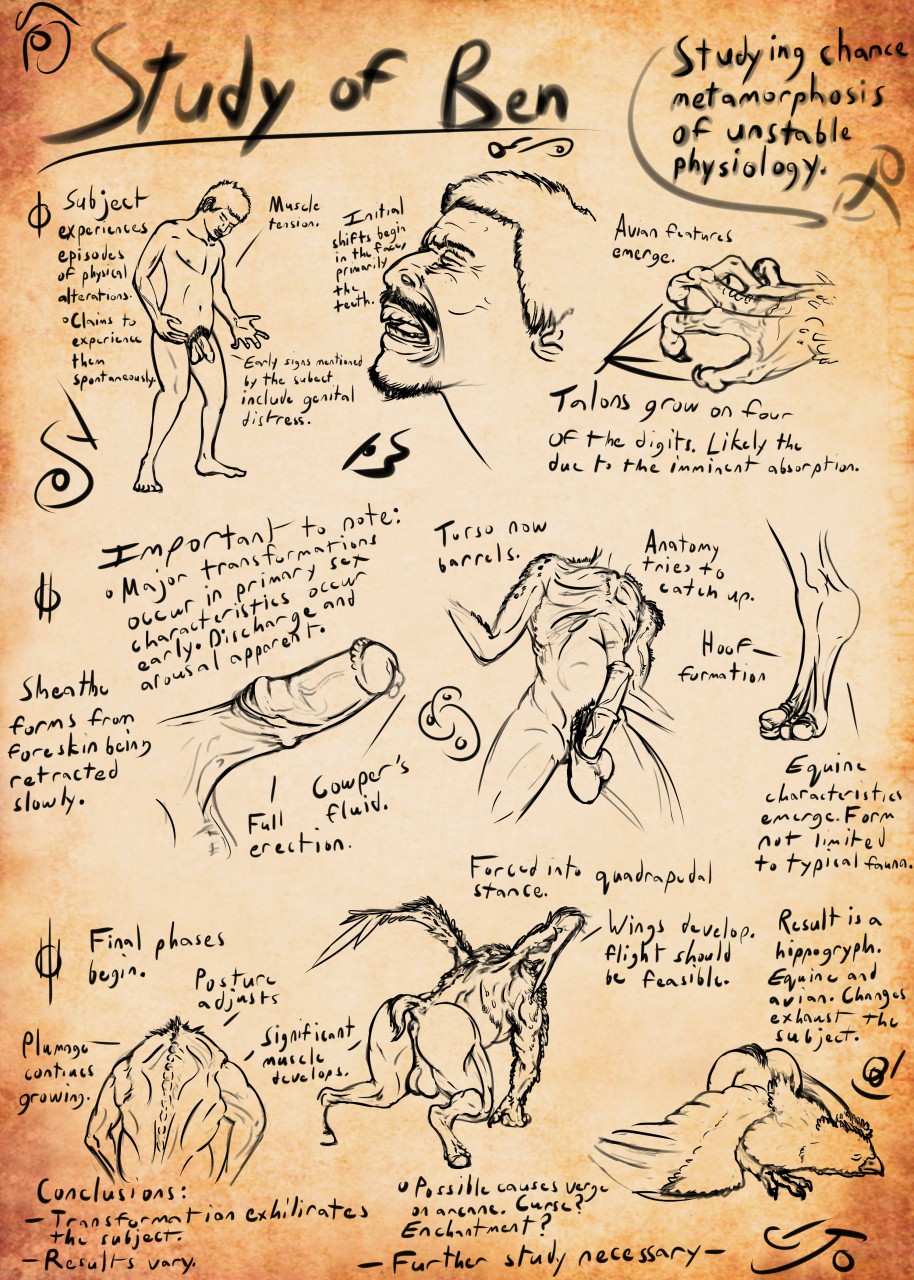 Study of Ben
Studying chance
metamorphosis
of unstable
physiology.
Subject
experiences
episodes
of physical
alterations.
Claims to
experience
them
spontaneously.
Muscle
tension.
Early signs mentioned
by the subect
include genital
distress.
Initial
shifts begin
in the face,
primarily
the
teeth.
Avian features
emerge.
Talons grow on four
of the digits. Likely the
due to the imminent absorption.
Important to note:
Major transformations
occur in primary sex
characteristics occur
early. Discharge and
arousal apparent.
Sheathe
forms from
foreskin being
retracted
slowly.
Full
erection.
Cowper's
fluid.
Torso now
barrels.
Anatomy
tries to
catch up.
Hoof
formation
Equine
characteristics
emerge. Form
not limited
to typical fauna.
Final phases
begin.
Posture
adjusts
Plumage
continues
growing.
Significant
muscle
develops.
Forced into quadrapedal
stance.
Wings develop.
flight should
be feasible.
Result is a
hippogryph.
Equine and
avian. Changes
exhaust the
subject.
Conclusions:
- Transformation exhilirates
the subject.
- Results vary.
Possible causes verge
on arcane. Curse?
Enchantment?
- Further study necessary -